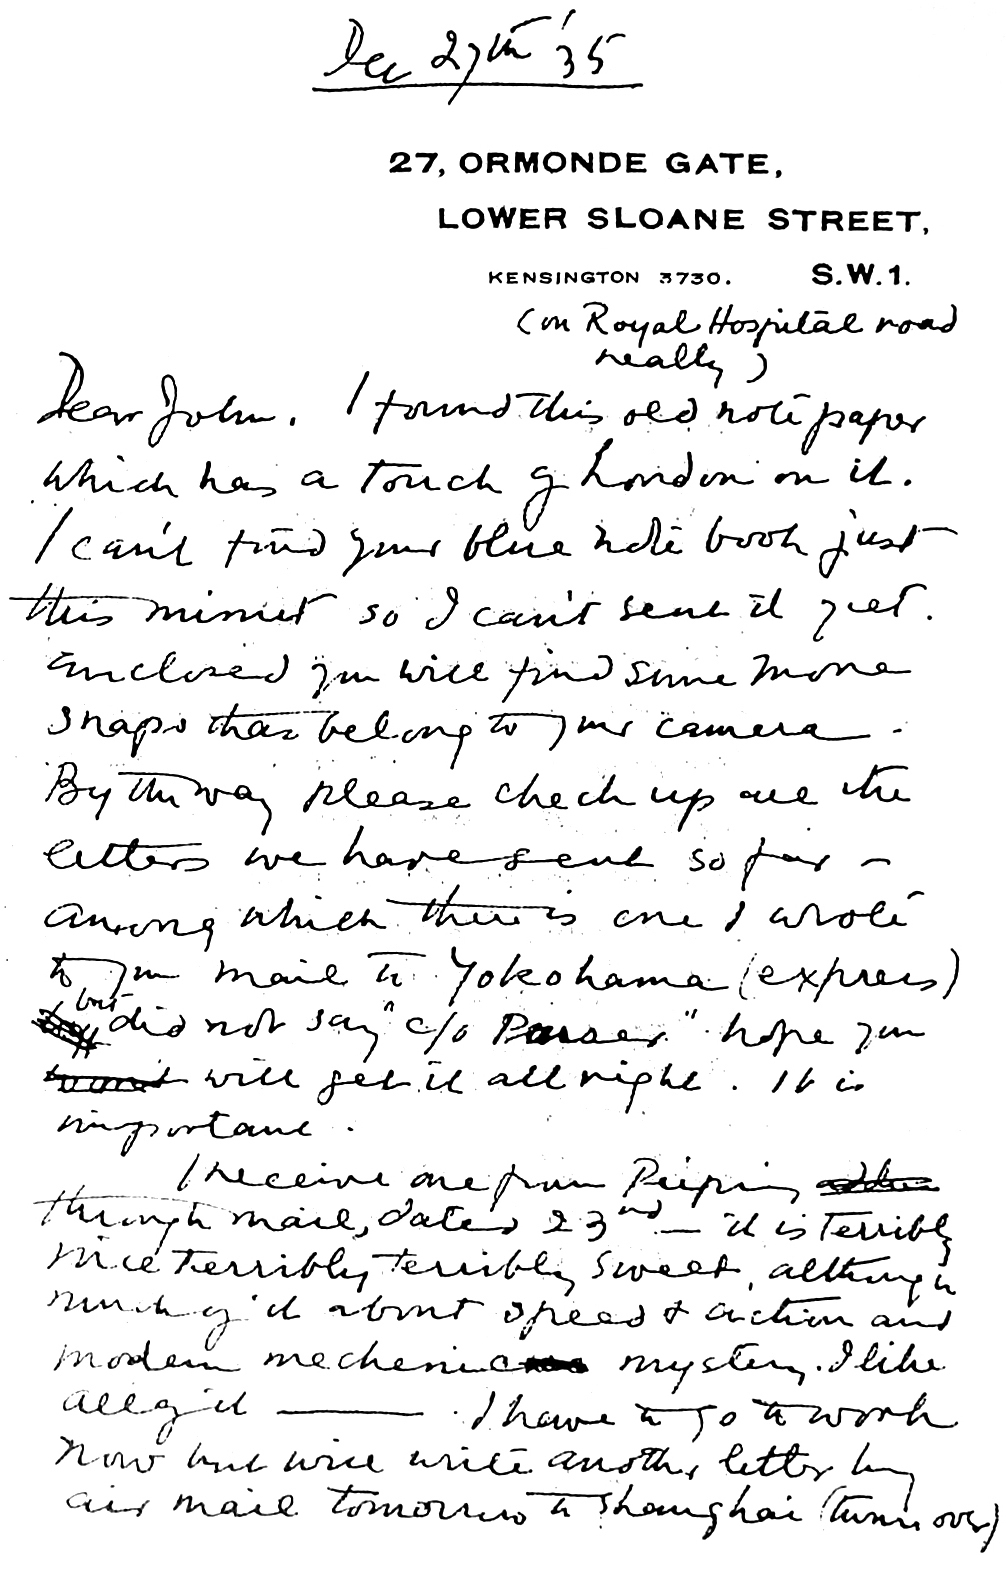 Dec 27th '35
27, ORMONDE GATE,
LOWER SLOANE STREET,
KENSINGTON 3730. S.W.1.
(on Royal Hospital road
really)
Dear John. I found this old note paper
which has a touch of London on it.
I can't find your blue note book just
this minut so I can't sent it yet.
Enclosed you will find some more
snaps that belong to your camera.
By the way please check up all the
letters we have sent so far –
among which there is one I wrote
to you mail to Yokohama (express)
but did not say "c/o Purser" hope you
will get it all right. It is
important.
I receive one from Peiping
through mail, dated 23rd – it is terribly
nice terribly terribly sweet, although
much of it about speed & action and
modern mechenic mystery. I like
all of it — . I have to go to work
now but will write another letter by
air mail tomorrow to Shanghai (turn over)